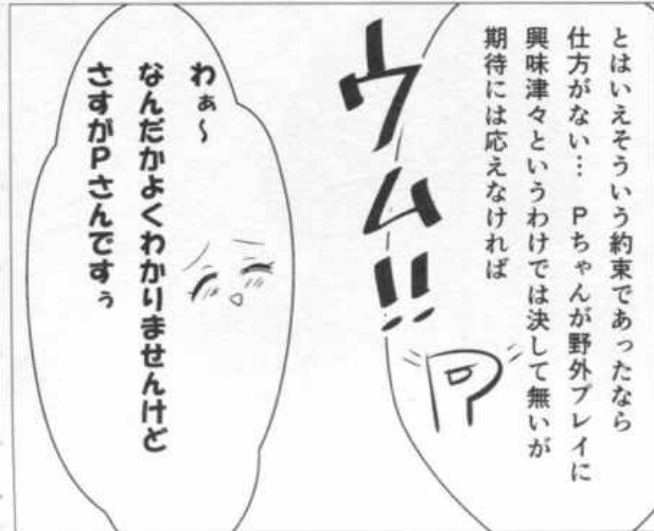 とはいえそういう約束であったなら
仕方がない… Pちゃんが野外プレイに
興味津々というわけでは決して無いが
期待には応えなければ
ウム!!
P
わぁ~
なんだかよくわかりませんけど
さすがPさんですぅ